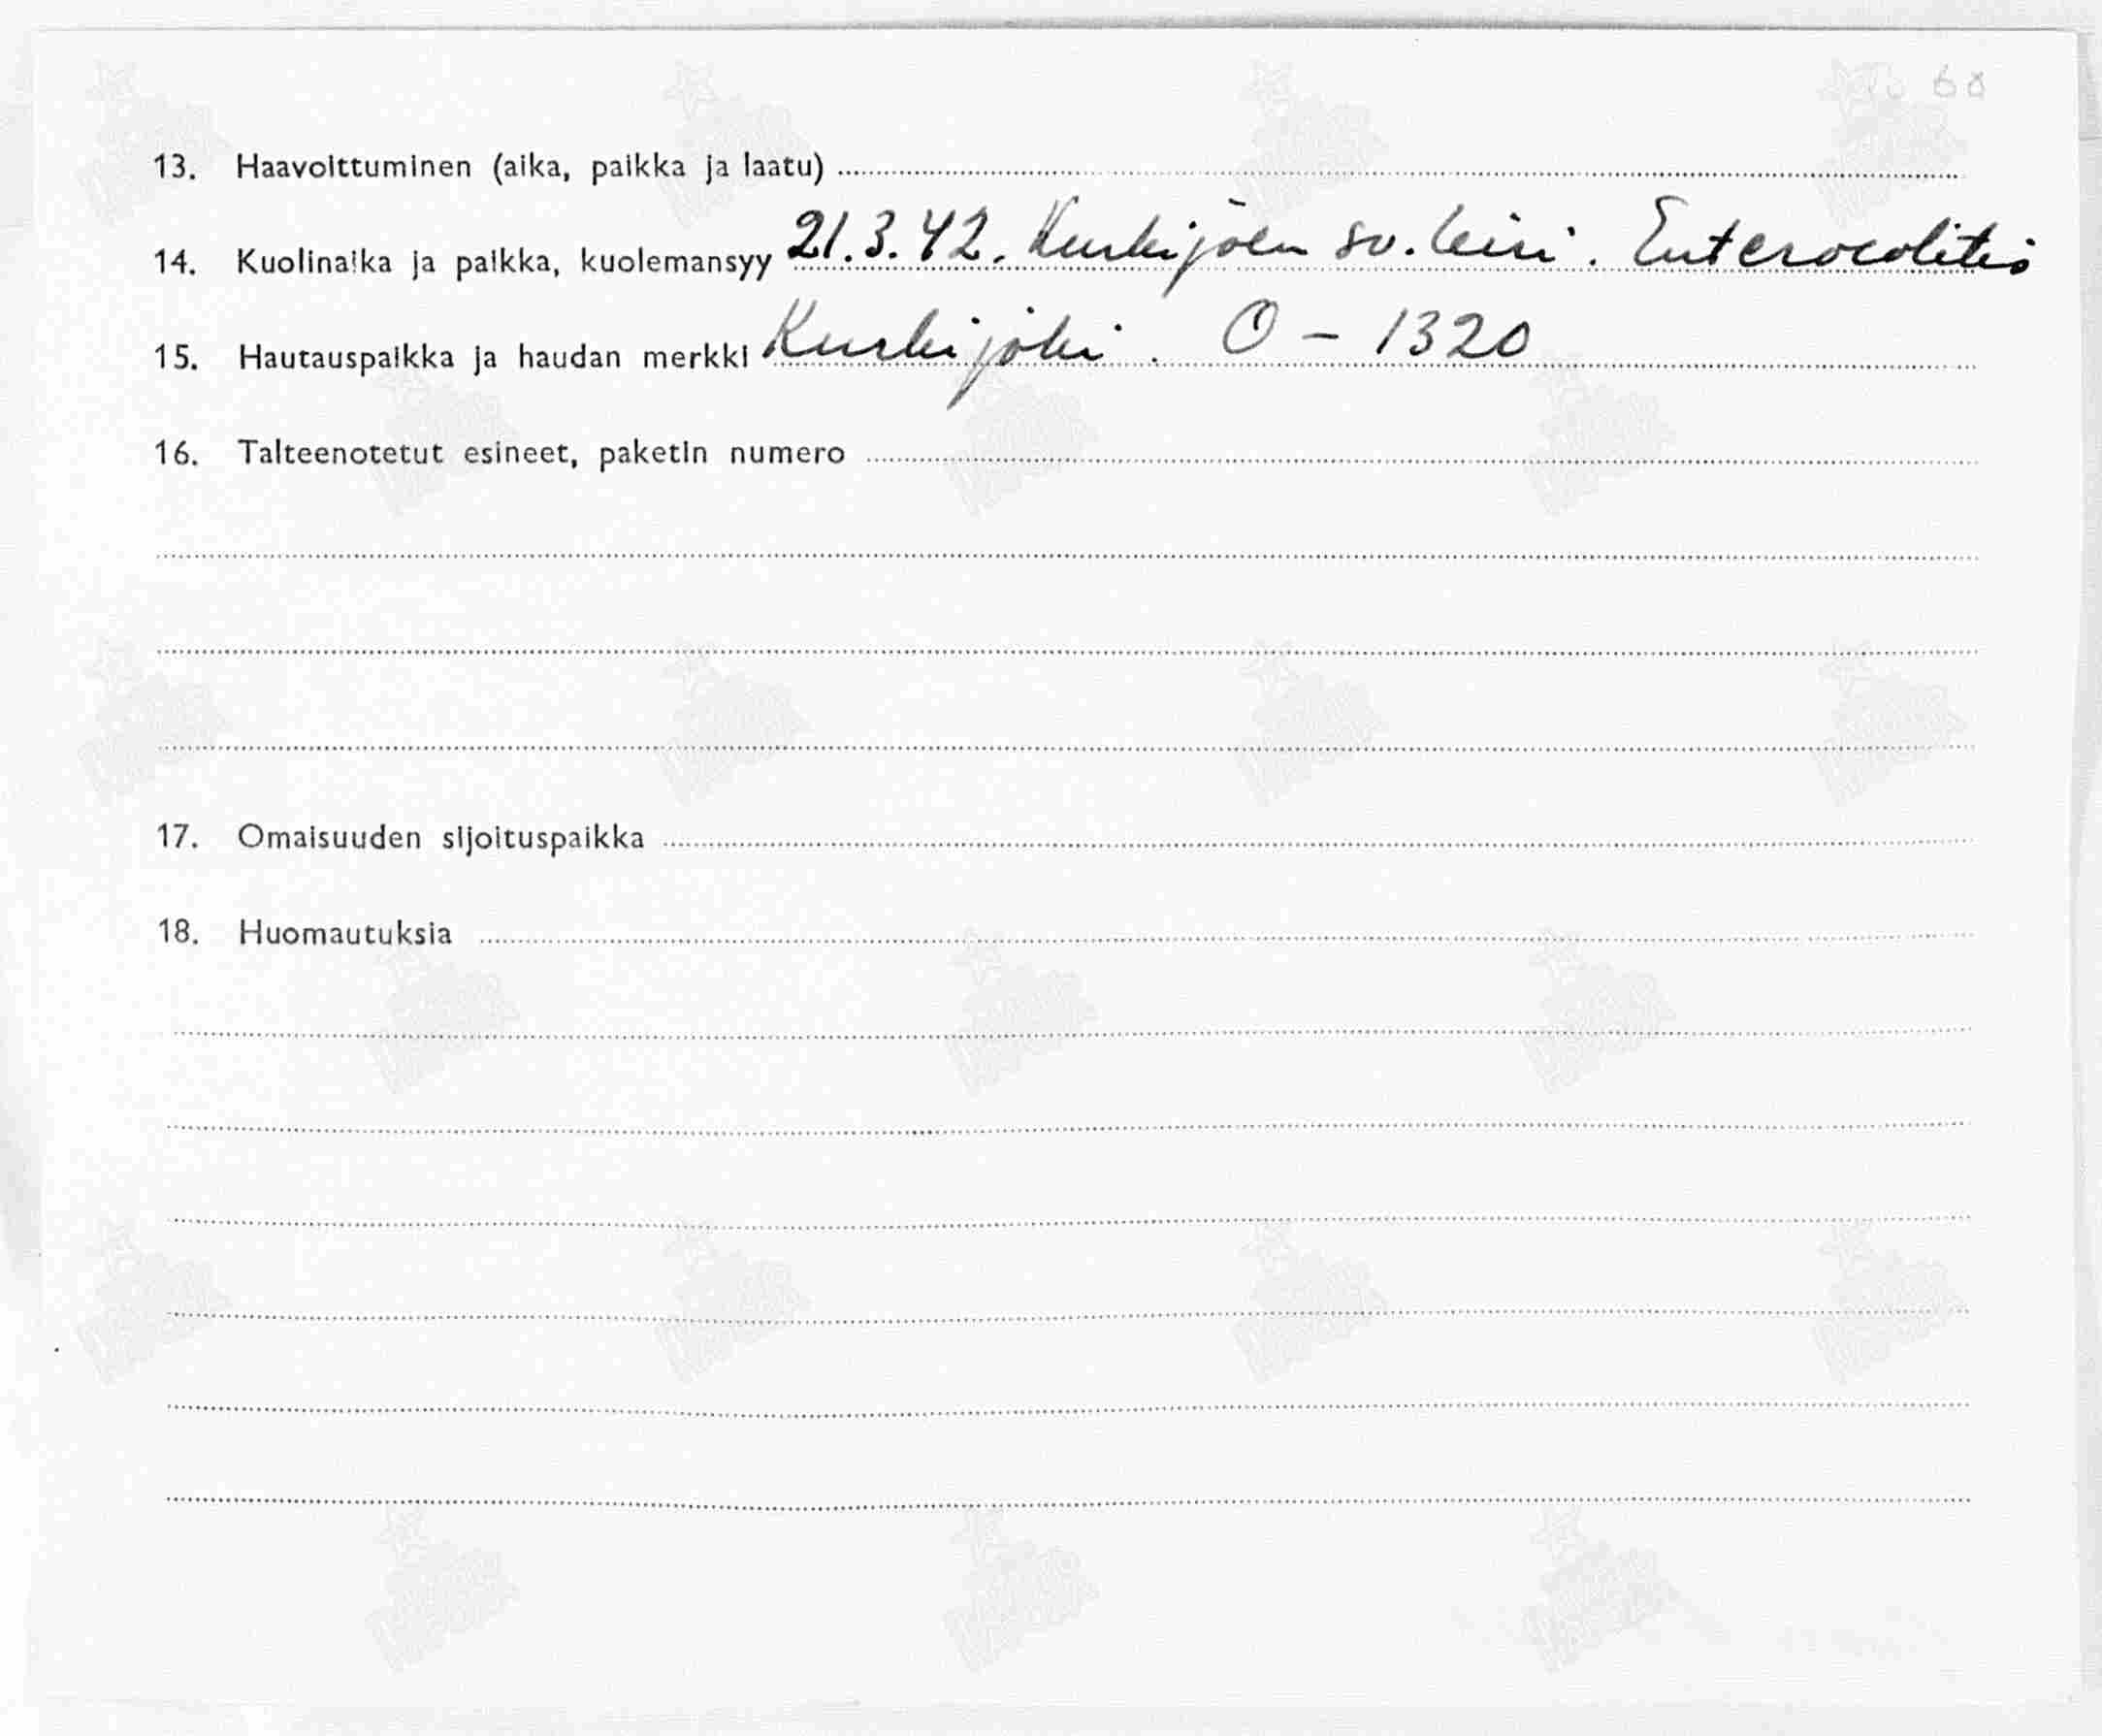 68
13. Haavoittuminen (aika, paikka ja laatu)
14. Kuolinaika ja paikka, kuolemansyy 21.3.42. Kurkijoen sv. leiri. Enterocolitis
15. Hautauspaikka ja haudan merkki Kurkijoki. O - 1320
16. Talteenotetut esineet, paketin numero
17. Omaisuuden sijoituspaikka
18. Huomautuksia